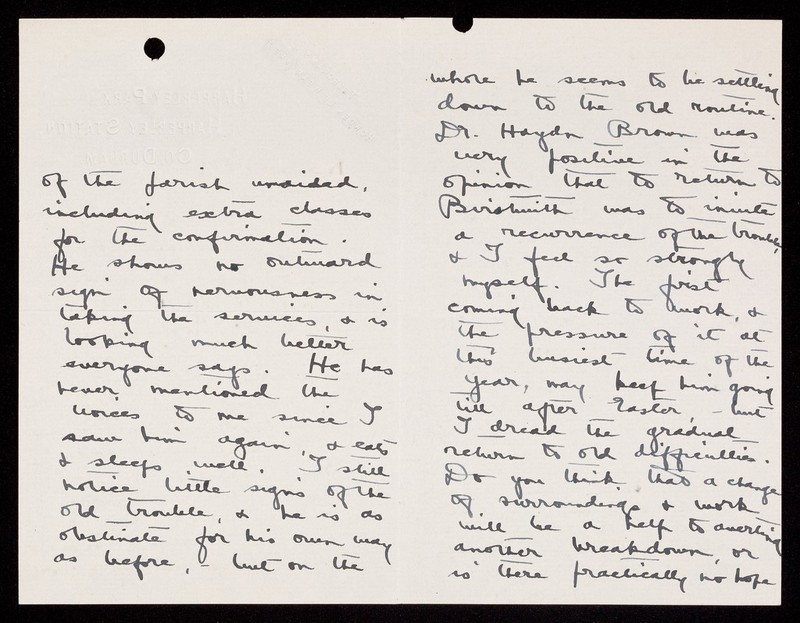 of the parish unaided,
including extra classes
for the confirmation.
He shows no outward
sign of nervousness in
taking the services, & is
looking much better
everyone says. He has
never mentioned the
voices to me since I
saw him again, & eats
& sleeps well. I still
notice little signs of the
old trouble, & he is as
obstinate for his own way
as before, - but on the
whole he seems to be settling
down to the old routine.
Dr. Haydn Brown was
very positive in the
opinion that to return to
was to invite
a recurrence of the trouble,
& I feel so strongly
myself. The first
coming back to work, &
the pressure of it at
this busiest time of the
year, may keep him going
till after Easter, - but
I dread the gradual
return to old difficulties.
Do you think that a change
of surroundings & work
will be a help to averting
another breakdown, or
is there practically no hope